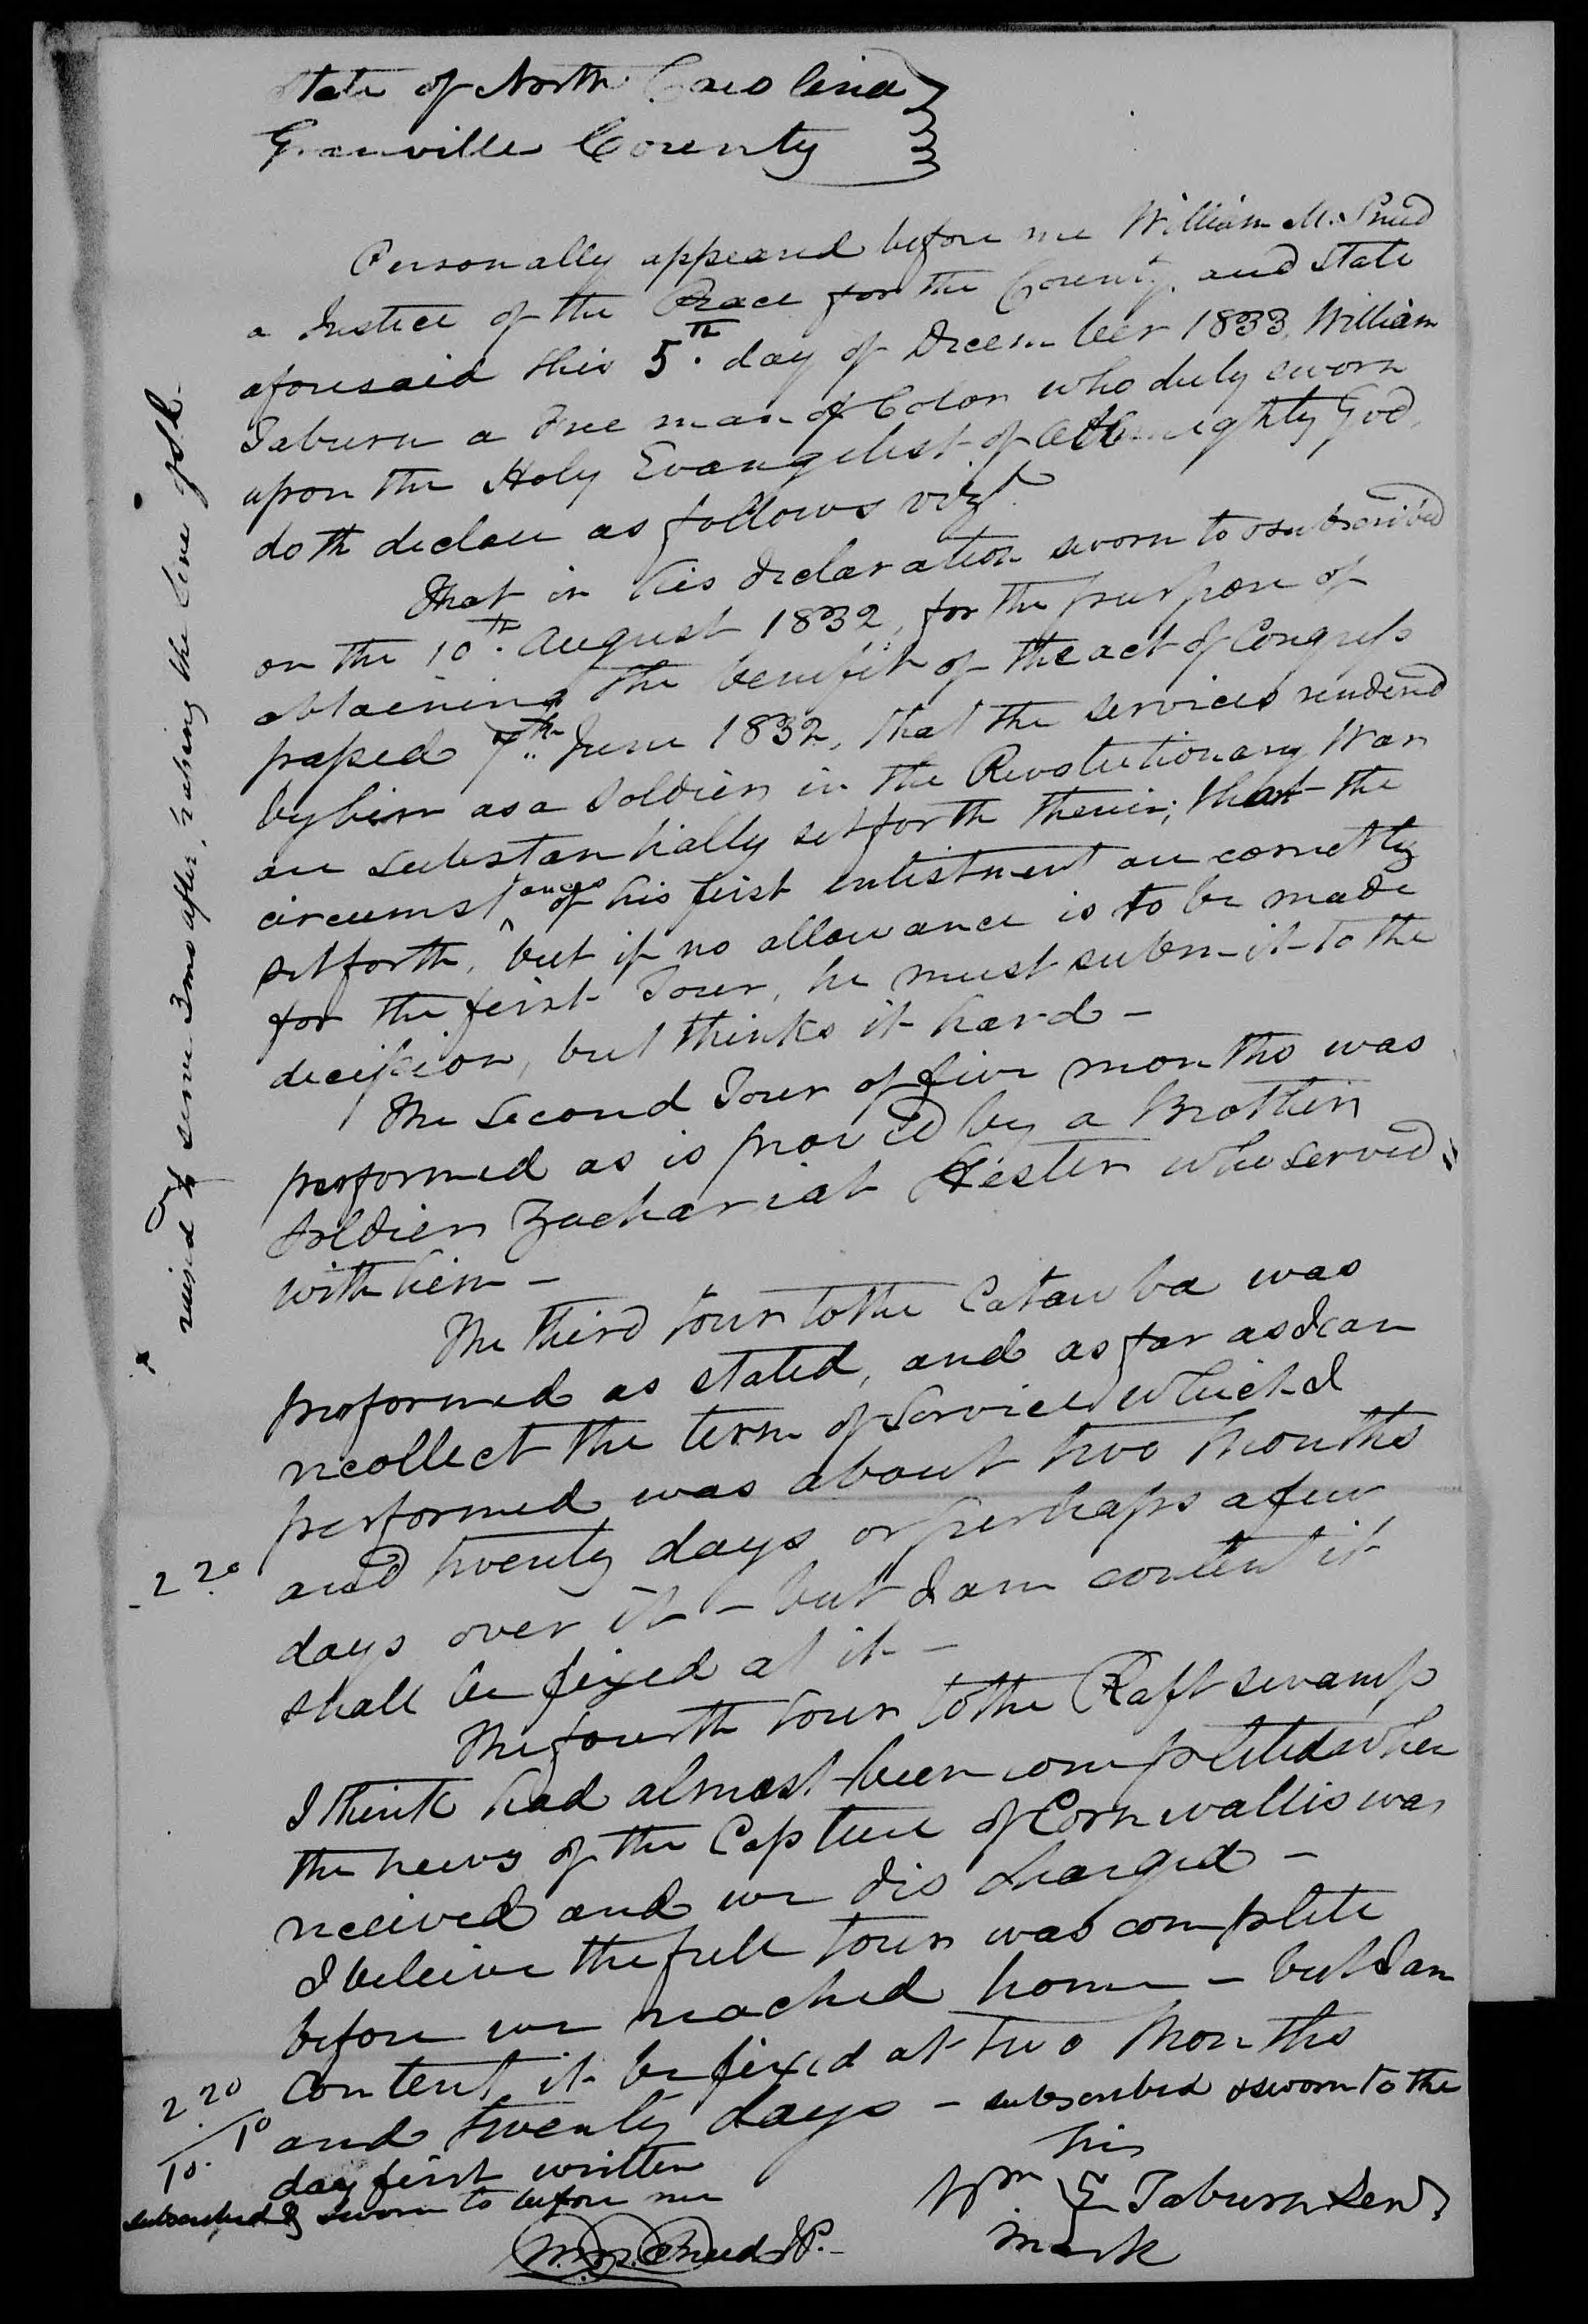 State of North Carolina
Granville County
Personally appeared before me William M. Sneed
a Justice of the Peace for the County and State
aforesaid this 5th day of December 1833, William
Taburn a Free man of Color who duly sworn
upon the Holy Evangelist of Allmighty God,
doth declare as follows vizt.
That in his declaration sworn to & subscribed
on the 10th August 1832, for the purpose of
obtaining the benefit of the act of Congress
passed 7th June 1832, that the services rendered
by him as a Soldier in the Revolutionary War
are substantially set forth therein; that the
circumstances of his first enlistment are correctly
set forth, but if no allowance is to be made
for the first Tour, he must submit to the
decission, but thinks it hard -
The Second Tour of five months was
performed as is proved by a Brother
Soldier Zachariah Hester who served
with him -
The third tour to the Catawba was
performed as stated, and as far as I can
recollect the term of Service which I
performed was about two Months
and twenty days or perhaps a few
days over it - but I am content it
shall be fixed at it -
The fourth tour to the Raft swamp
I think had almost been completed when
the news of the Capture of Cornwallis was
received and we discharged -
I beleive the full tour was complete
before we reached home - but I am
content it be fixed at two Months
and twenty days - subscribed & sworn to the
day first written
his
Wm Taburn Senr
mark
subscribed & sworn to before me
W. M. Sneed J.P.
2.20
2.20
10.10
raised to serve 3 mo after, raising the line of